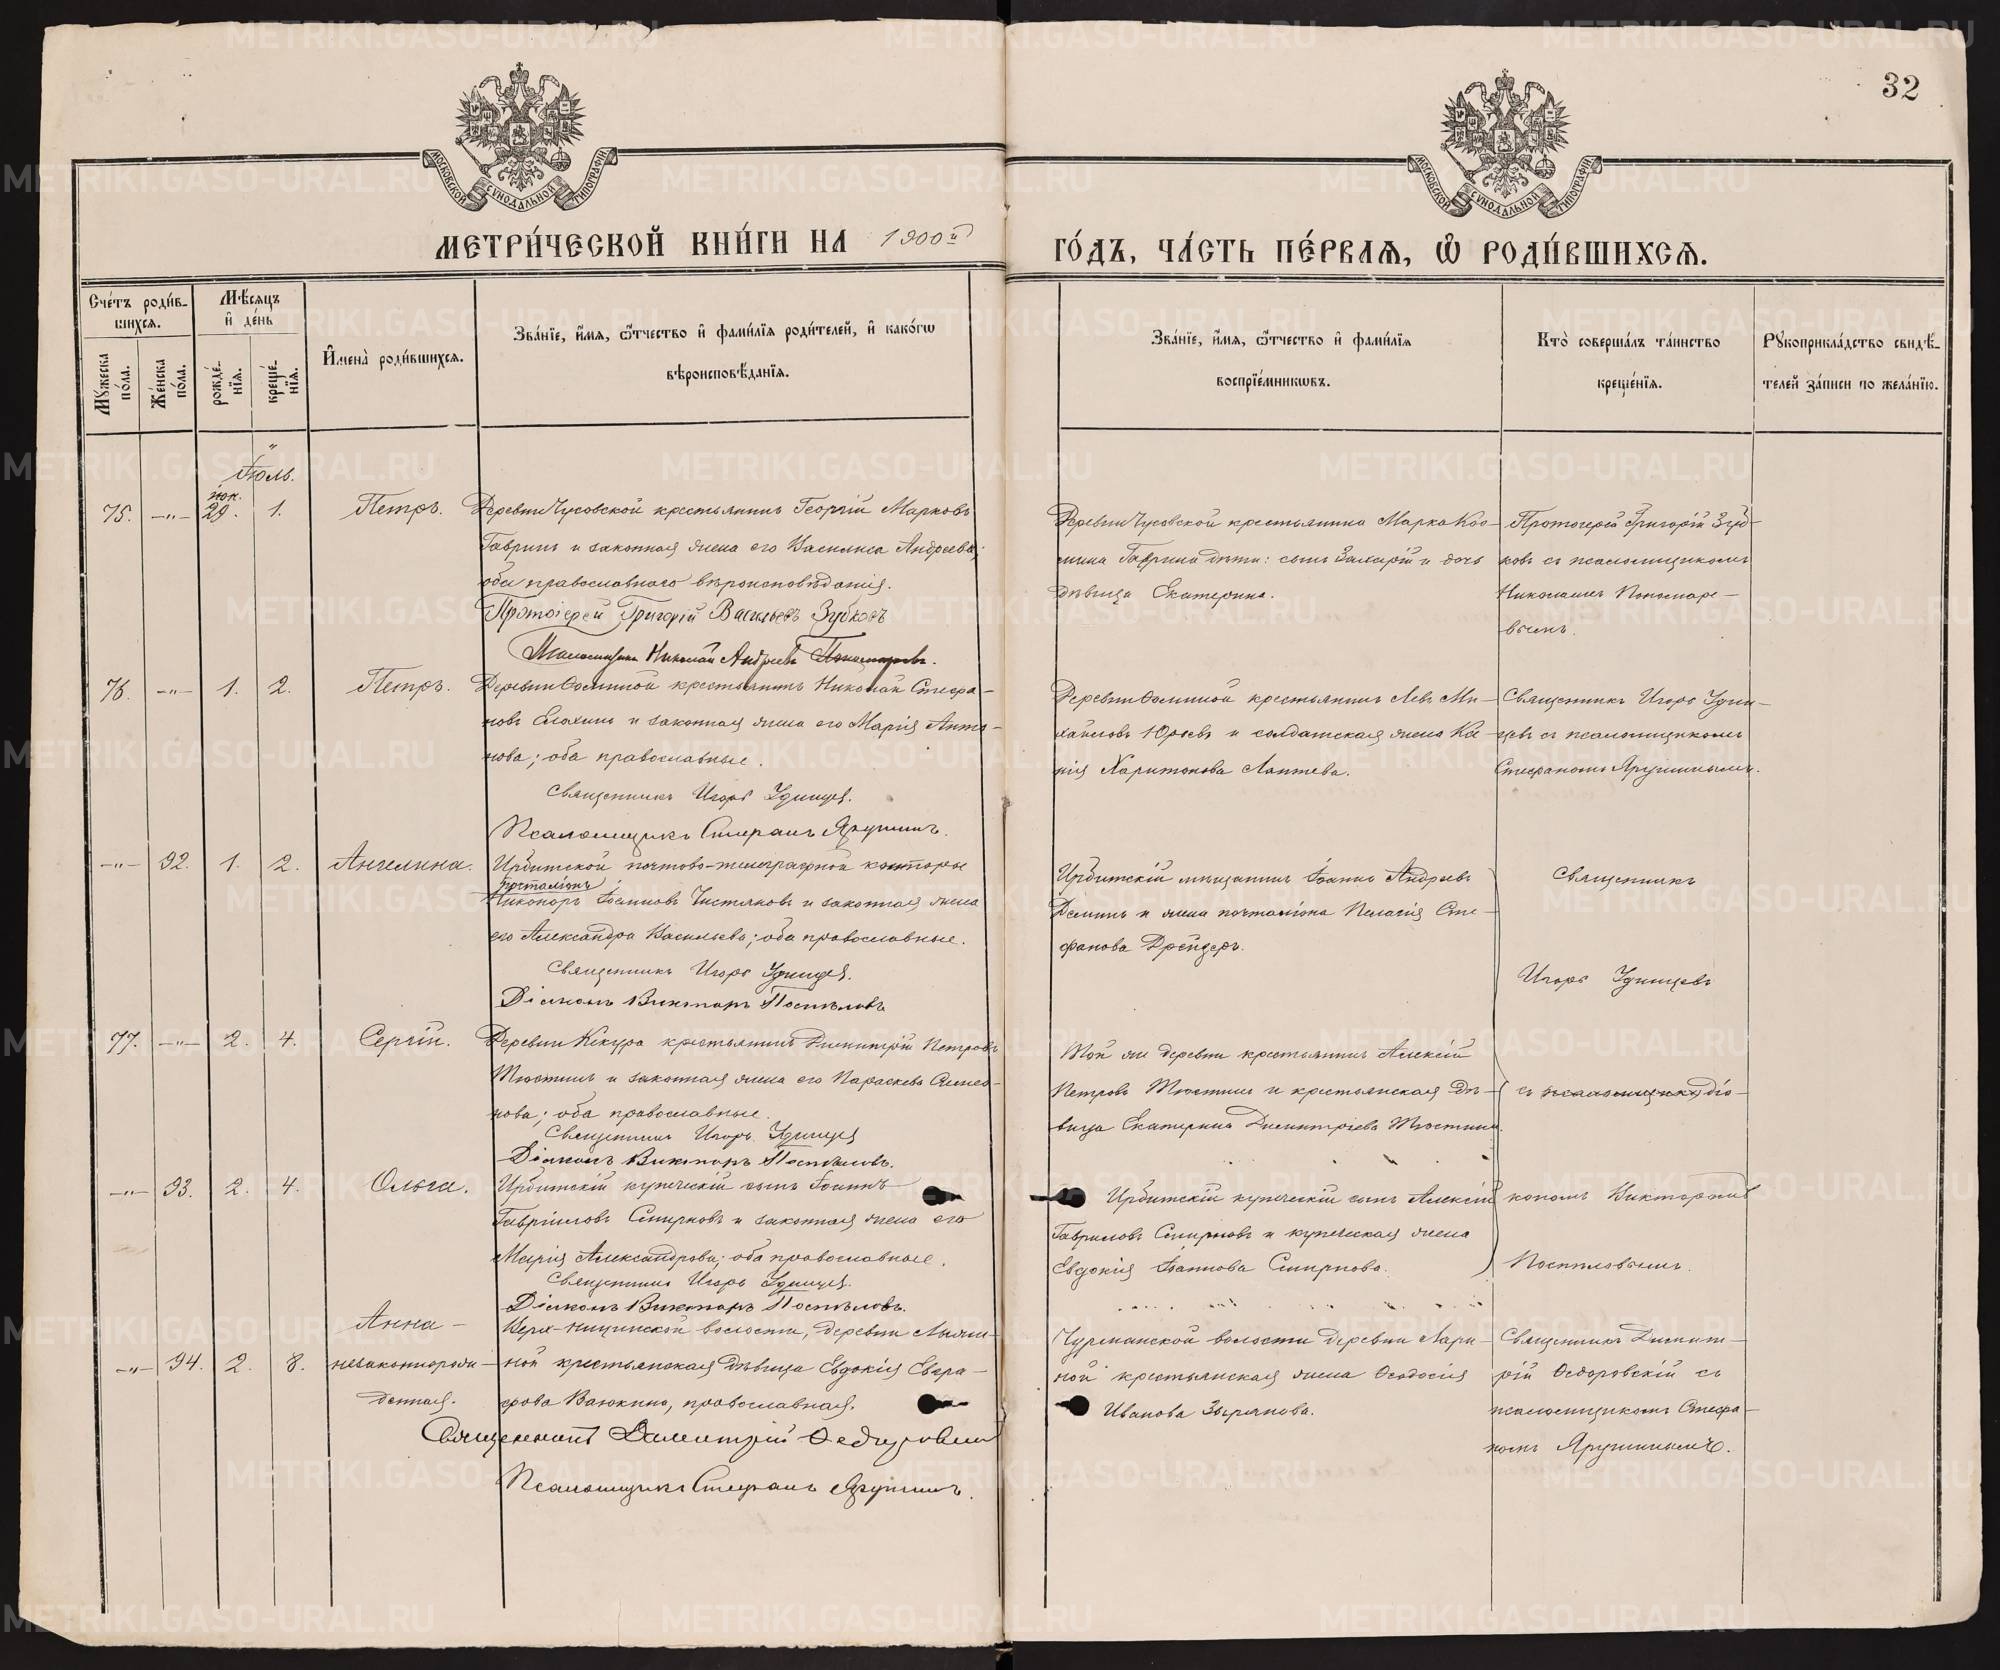 32
МОСКОВСКОЙ СѴНОДАЛЬНОЙ ТИПОГРАФІИ
МОСКОВСКОЙ СѴНОДАЛЬНОЙ ТИПОГРАФІИ
МЕТРИ́ЧЕСКОЙ КНИ́ГИ НА 1900й
ГО́ДЪ, ЧА́СТЬ ПЕ́РВАѦ, Ѡ҆ РОДИ́ВШИХСѦ.
Сче́тъ роди́в-
шихсѧ.
Мѣ́сѧцъ
и҆ де́нь
Мꙋ́жеска по́ла.
Же́нска по́ла.
рожде́-
нїѧ.
креще́-
нїѧ.
И҆мена̀ роди́вшихсѧ.
Зва́нїе, и҆́мѧ, ѻ҆́тчество и҆ фами́лїѧ роди́телей, и҆ како́гѡ
вѣроисповѣ́данїѧ.
Зва́нїе, и҆́мѧ, ѻ҆́тчество и҆ фами́лїѧ
воспрїе́мникѡвъ.
Кто̀ соверша́лъ та́инство
креще́нїѧ.
Рꙋкоприкла́дство свидѣ́-
телей за́писи по жела́нїю.
Іюль.
75. —"— іюн. 29. 1. Петръ.
Деревни Чусовской крестьянинъ Георгій Марковъ
Гавринъ и законная жена его Василиса Андреева;
оба православнаго вѣроисповѣданія.
Протоіерей Григорій Васильевъ Зубковъ
Псаломщикъ Николай Андреевъ Пономаревъ.
Деревни Чусовской крестьянина Марка Кос-
мина Гаврина дѣти: сынъ Захарій и дочь
дѣвица Екатерина.
Протоіерей Григорій Зуб-
ковъ съ псаломщикомъ
Николаемъ Пономаре-
вымъ.
76. —"— 1. 2. Петръ.
Деревни Фоминой крестьянинъ Николай Стефа-
новъ Елохинъ и законная жена его Марія Анто-
нова; оба православные.
Священникъ Игорь Удинцев.
Псаломщикъ Стефанъ Ярушинъ.
Деревни Фоминой крестьянинъ Левъ Ми-
хайловъ Юрьевъ и солдатская жена
Харитонова Лаптева.
Священникъ Игорь Удин-
цевъ съ псаломщикомъ
Стефаномъ Ярушинымъ.
—"— 92. 1. 2. Ангелина.
Ирбитской почтово-телеграфной конторы
почталіонъ
Никоноръ Іоанновъ Чистяковъ и законная жена
его Александра Васильева; оба православные.
Священникъ Игорь Удинцев.
Діаконъ Викторъ Поспѣловъ
Ирбитскій мѣщанинъ Іоаннъ Андреевъ
Деминъ и жена почталіона Пелагія Сте-
фанова Дрейдеръ.
Священникъ
Игорь Удинцевъ
77. —"— 2. 4. Сергій.
Деревни Кекура крестьянинъ Димитрій Петровъ
Тюстинъ и законная жена его Параскева Симео-
нова; оба православные.
Священникъ Игорь Удинцев
Діаконъ Викторъ Поспѣловъ.
Той же деревни крестьянинъ Алексій
Петровъ Тюстинъ и крестьянская дѣ-
вица Екатерина Димитріева Тюстина.
съ псаломщик діа-
—"— 93. 2. 4. Ольга.
Ирбитскій купеческій сынъ Іоаннъ
Гавріиловъ Смирновъ и законная жена его
Марія Александрова; оба православные.
Священникъ Игорь Удинцев.
Діаконъ Викторъ Поспѣловъ.
Ирбитскій купеческій сынъ Алексій
Гавриловъ Смирновъ и купеческая жена
Евдокія Іоаннова Смирнова.
кономъ Викторомъ
Поспѣловымъ.
—"— 94. 2. 8. Анна —
незаконнорож-
денная.
Верх-Ницинской волости, деревни
ной крестьянская дѣвица Евдокія Евгра-
фова Ваюкина, православная.
Священникъ Димитрій Федоровскій
Псаломщикъ Стефанъ Ярушинъ.
Чурманской волости деревни Лари-
ной крестьянская жена Феодосія
Иванова Зырянова.
Священникъ Димит-
рій Федоровскій съ
псаломщикомъ Стефа-
номъ Ярушинымъ.